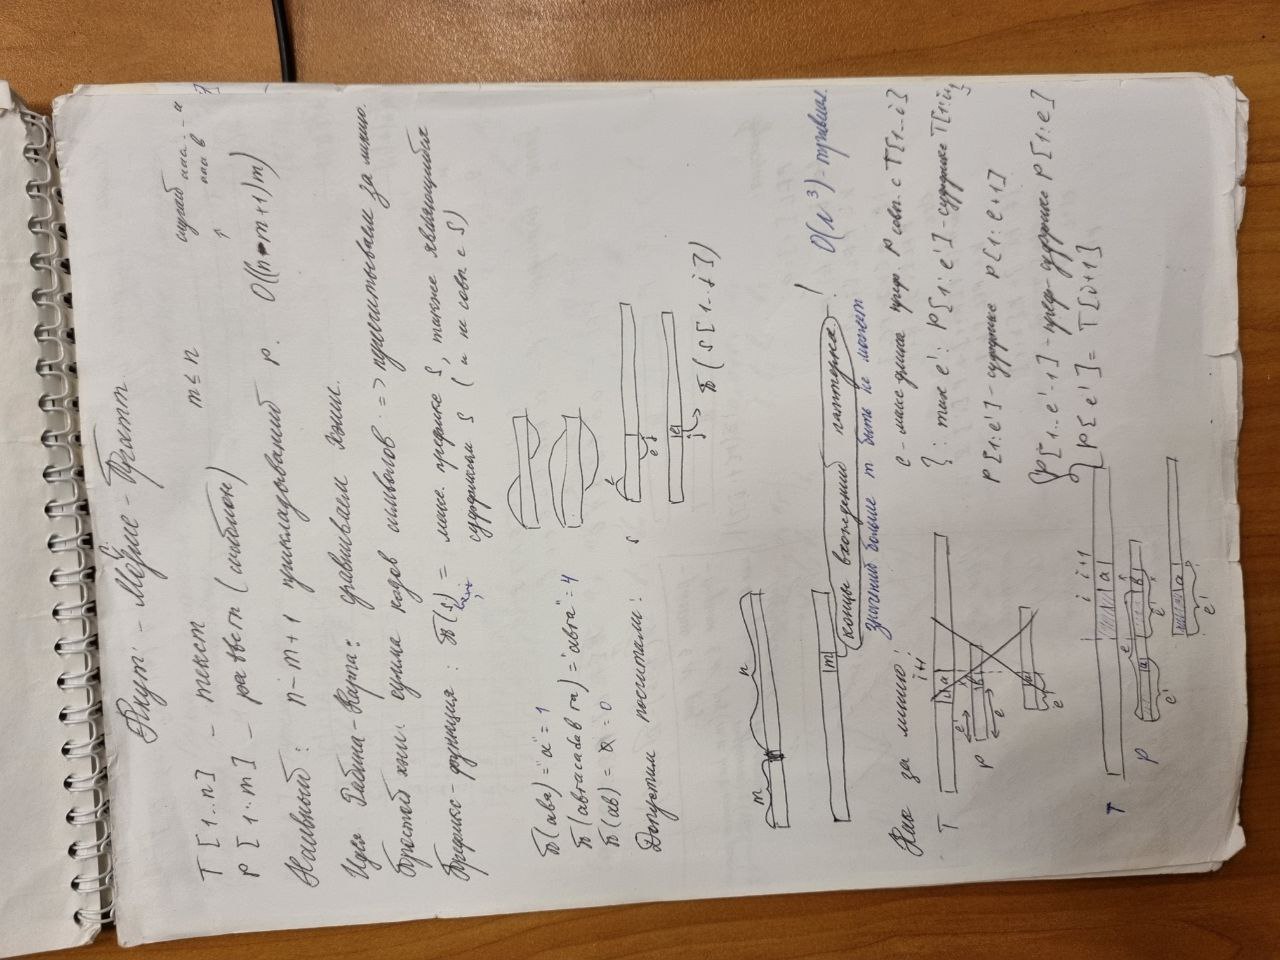 Кнут - Моррис - Пратт
T [1..n] - текст m ≤ n случай aaa...a
P [1..m] - pattern (шаблон) aaa b
Наивный: n-m+1 прикладываний P. O((n-m+1)m)
Идея Рабина-Карпа: сравниваем хэши.
Простой хэш: сумма кодов символов => пересчитываем за линию.
Префикс-функция: π(s) = макс. префикс S, также являющийся
суффиксом S (и не совп. с S)
π(aba) = "a" = 1
π(abracadabra) = "abra" = 4
π(ab) = ∅ = 0
Допустим посчитали: S
e
e j
e
j
π(S[1..j])
m n
m
концы вхождений паттерна - ! O(n³) - тривиал.
значений больше m быть не может
Как за линию?
e - макс длина преф. P совп. с T[1..i]
i+1
T i a
? : max e': P[1:e'] - суффикс T[1:i+1]
e'
P b
e
P[1:e'] - суффикс P[1:e+1]
a
e'
P[1..e'-1] - преф-суффикс P[1:e]
P[e'] = T[i+1]
i i+1
T a
e
P a b
e' e' x
a
e'